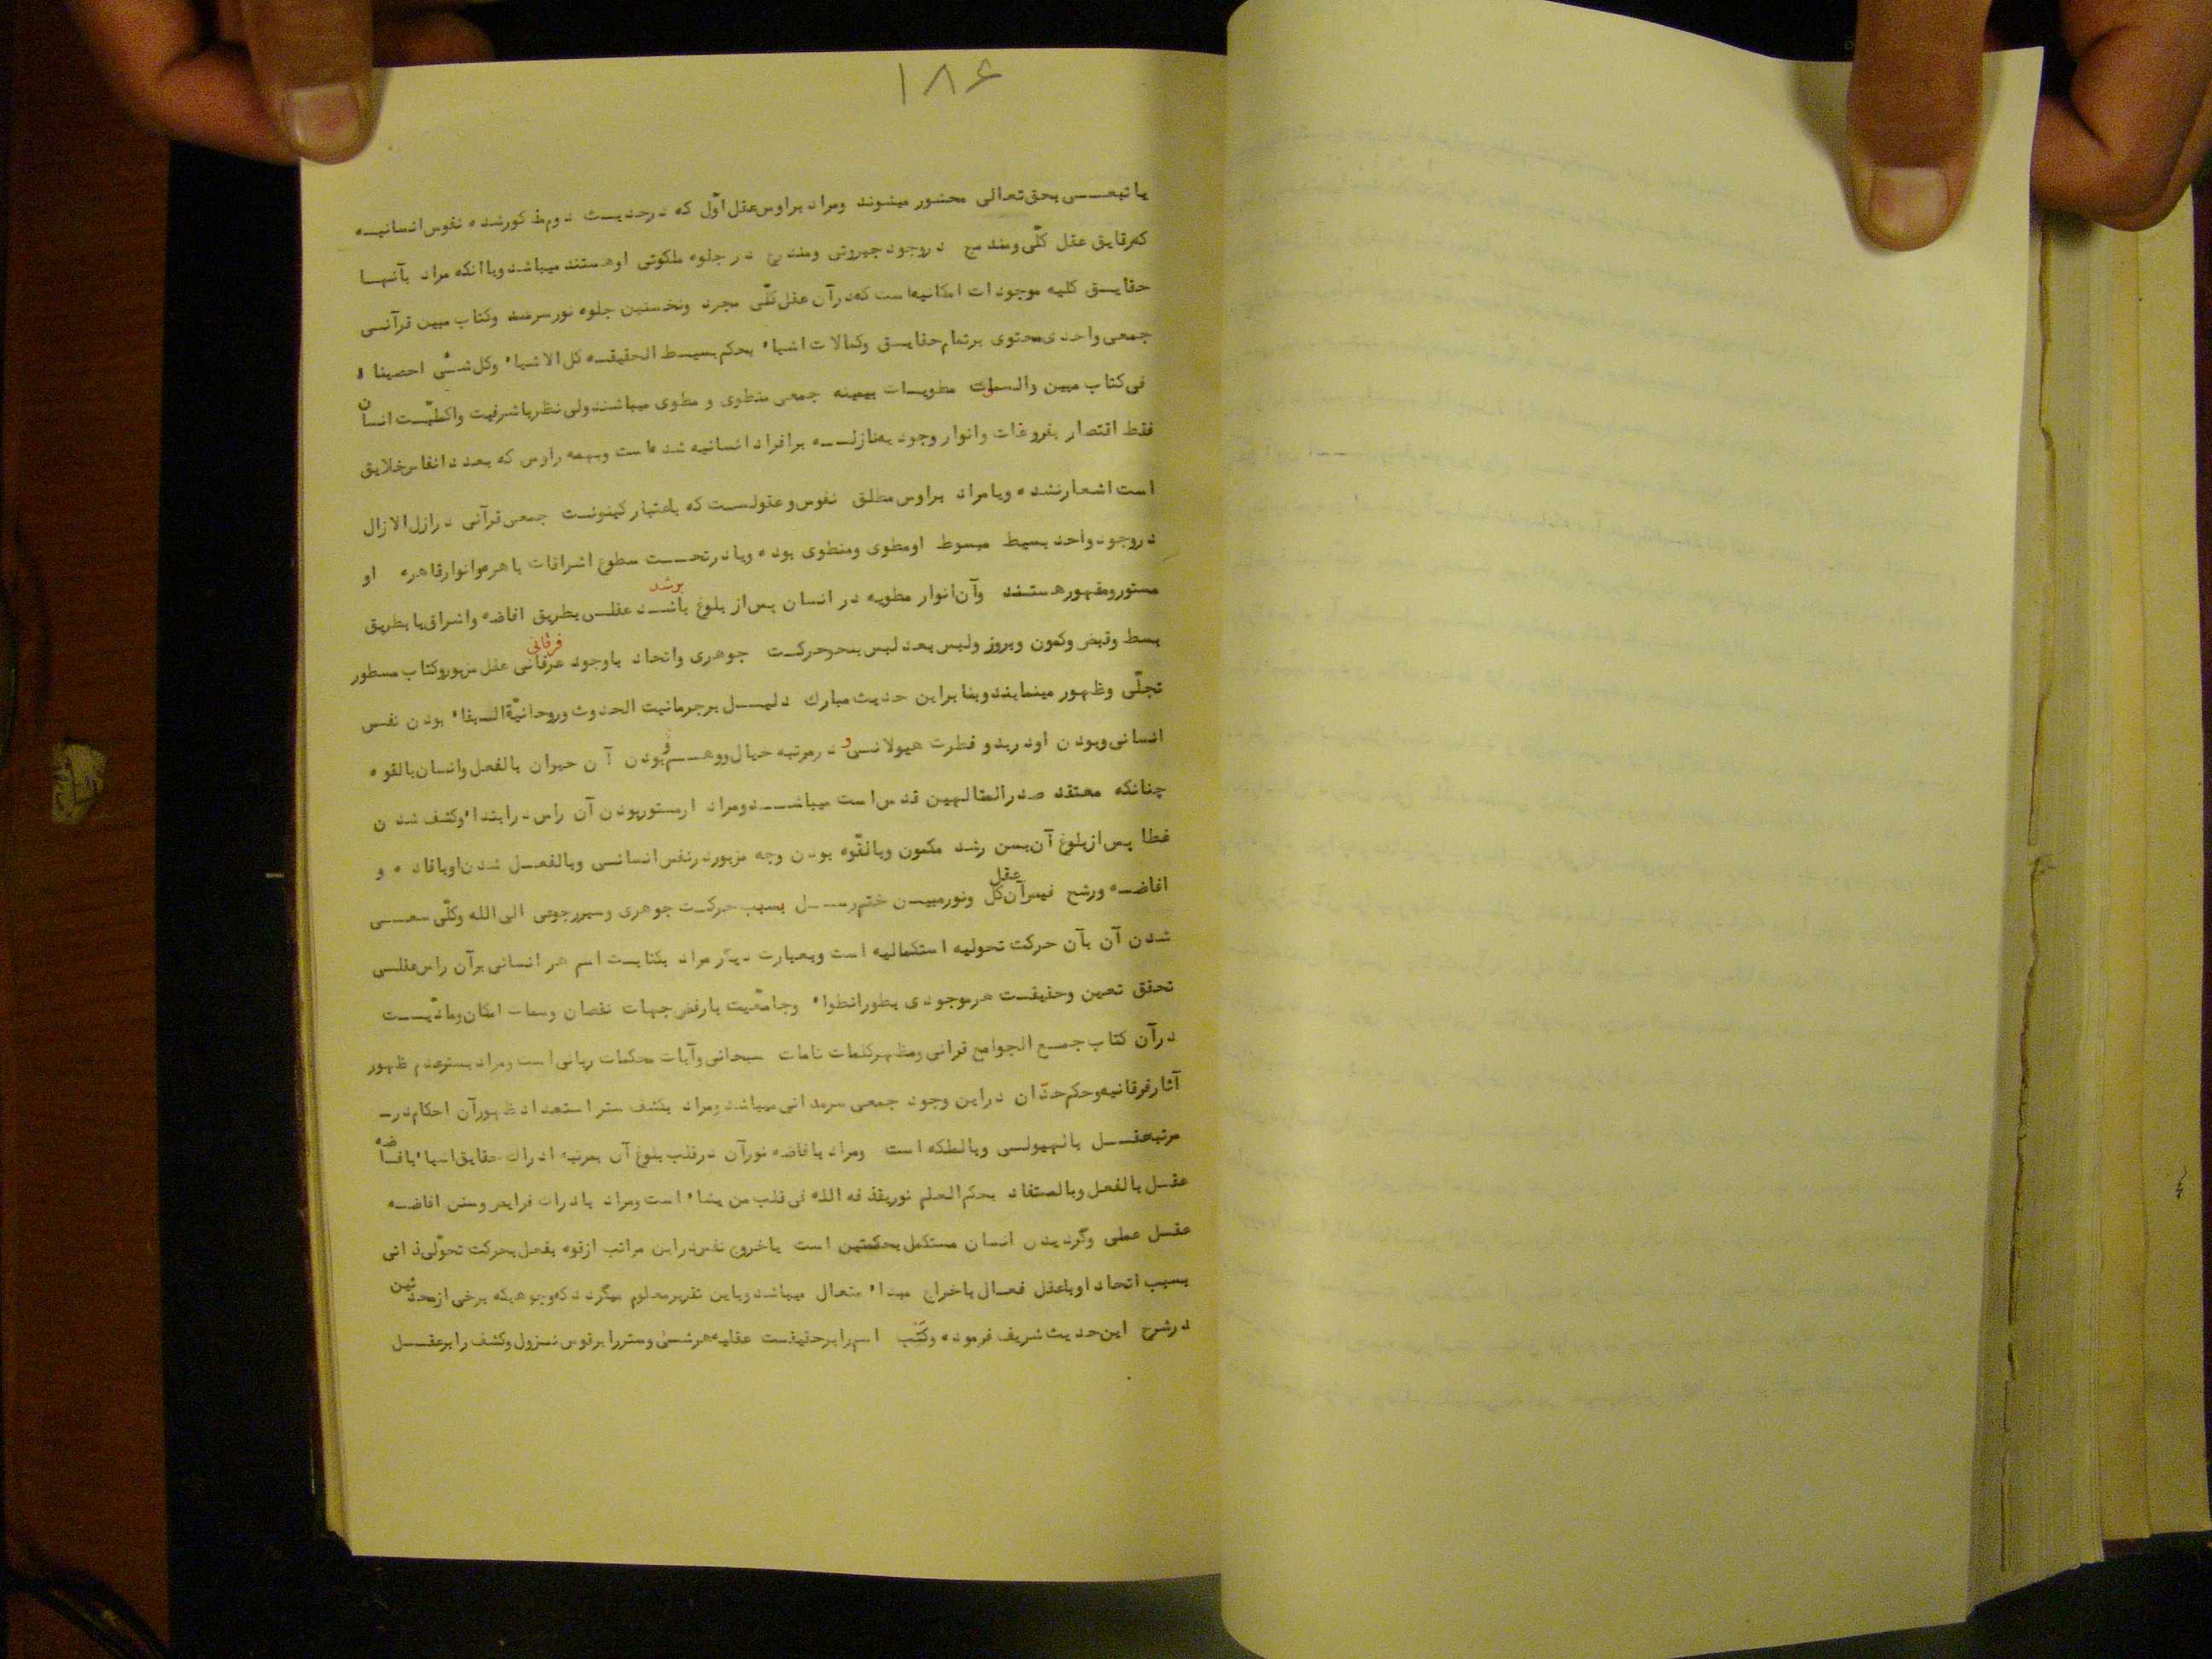 ۱۸۶
یا تبعی بحق تعالی محشور میشوند ومراد براوس عقل اوّل که درحدیث دوم مذکورشده نفوس انسانیه
که رقایق عقل کلّی ومندمج دروجود جبروتی ومندرج در جلوه ملکوتی اوهستند میباشد ویاانکه مراد بآنها
حقایق کلیه موجودات امکانیه است که درآن عقل کلّی مجرد ونخستین جلوه نورسرمد وکتاب مبین قرآنی
جمعی واحدی محتوی برتمام حقایق وکمالات اشیاء بحکم بسیط الحقیقه کل الاشیاء وکل شیٔ احصینا ه
فی کتاب مبین والسموات مطویات بیمینه جمعی منطوی و مطوی میباشند ولی نظر باشرفیت واکملیّت انسان
فقط اقتصار بفروغات وانوار وجودیه نازله برافراد انسانیه شده است وبهمه راوس که بعدد انفاس خلایق
است اشعارنشده ویامراد براوس مطلق نفوس وعقولست که باعتبار کینونت جمعی قرآنی درازل الازال
دروجود واحد بسیط مبسوط اومطوی ومنطوی بوده ویادرتحت سطوع اشراقات باهره وانوارقاهره او
مستورومقهورهستند وآن انوار مطویه در انسان پس از بلوغ باشد برشد عقلی بطریق افاضه واشراق یا بطریق
بسط وقبض وکمون وبروز ولبس بعد لبس بنحوحرکت جوهری واتحاد باوجود عرفانی فرقانی عقل مزبوروکتاب مسطور
تجلّی وظهور مینمایند وبنا براین حدیث مبارك دلیل برجرمانیت الحدوث وروحانیّة البقاء بودن نفس
انسانی وبودن اودربدو فطرت هیولانی و درمرتبه خیال ووهم و بودن آن حیوان بالفعل وانسان بالقوه
چنانکه معتقد صدرالمتالهین قدس است میباشد ومراد ازمستوربودن آن راس درابتداء وکشف شدن
غطا پس ازبلوغ آن بسن رشد مکمون وبالقوّه بودن وجه مزبوردرنفس انسانی وبالفعل شدن اوبافاده و
افاضه ورشح فیض آن عقل کل ونورمبین ختم رسل بسبب حرکت جوهری وسیررجوعی الی الله وکلّی سعی
شدن آن بآن حرکت تحولیه استکمالیه است وبعبارت دیگر مراد بکتابت اسم هر انسانی برآن راس عقلی
تحقق تعین وحقیقت هرموجودی بطورانطواء وجامعّیت بارفض جهات نقصان وسمات امکان ومادّیت
درآن کتاب جمع الجوامع قرانی ومظهرکلمات تامات سبحانی وآیات محکمات ربانی است ومراد بسترعدم ظهور
آثارفرقانیه وحکم حدّان دراین وجود جمعی سرمدانی میباشد ومراد بکشف ستر استعداد ظهورآن احکام در
مرتبه عقل بالهیولی وبالملکه است ومراد بافاضه نورآن درقلب بلوغ آن بمرتبه ادراك حقایق اشیاء بافاضه
عقل بالفعل وبالمستفاد بحکم العلم نوریقذفه الله فی قلب من یشاء است ومراد بادراك فرایض وسنن افاضه
عقل عملی وگردیدن انسان مستکمل بحکمتین است باخروج نفس دراین مراتب ازقوه بفعل بحرکت تحوّلی ذاتی
بسبب اتحاد اوباعقل فعال باخراج مبداء متعال میباشد وباین تقریر معلوم میگردد که وجوهیکه برخی ازمحدثین
درشرح این حدیث شریف فرموده وکتب اسم رابرحقیقت عقلیه هرشیٔ وستررا برقوس نزول وکشف رابرعقل